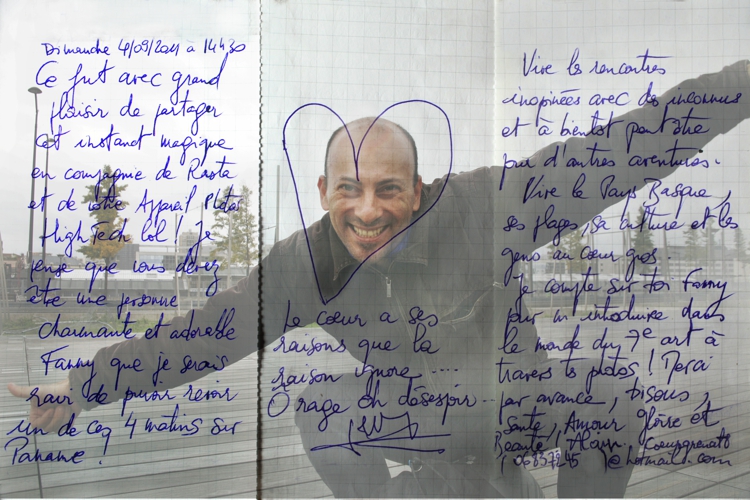 Dimanche 4/09/2011 à 14h30
Ce fut avec grand
plaisir de partager
cet instant magique
en compagnie de Rasta
et de votre Appareil Photo
High Tech lol ! Je
pense que vous devez
être une personne
charmante et adorable
Fanny que je serais
ravi de pouvoir revoir
un de ceq 4 matins sur
Paname !
Le coeur a ses
raisons que la
raison ignore ....
O rage oh désespoir...
Vive les rencontres
inopinées avec des inconnus
et à bientot peut être
pour d'autres aventures.
Vive le Pays Basque,
ses plages, sa culture et les
gens au coeur gros.
Je compte sur toi Fanny
pour m'introduire dans
le monde du 7e art à
travers ts photos ! Merci
par avance, bisous,
Santé, Amour gloire et
Beauté !
@hotmail.com